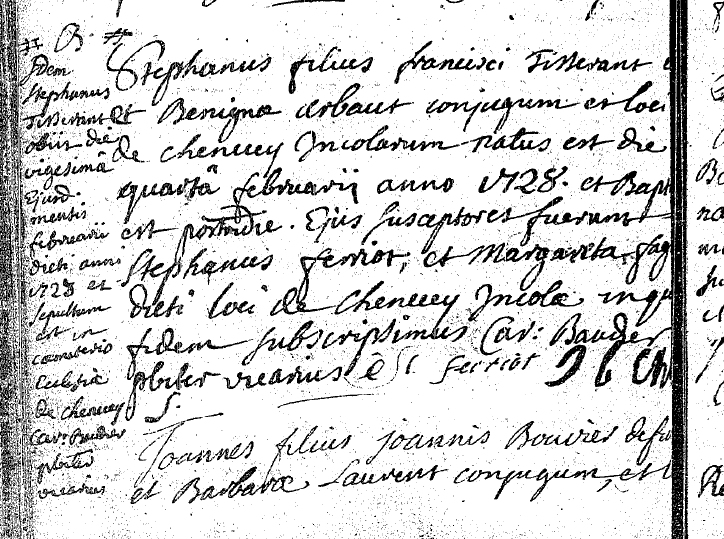 B.
Idem
Stephanus
Tisserant
obiit die
vigesimâ
Ejusd.
mensis
februarii
dicti anni
1728 et
Sepultum
est in
coemeterio
Ecclesiæ
de chenecey
Car: Baudier
pbiter
vicarius
Stephanus filius francisci Tisserant
et Benignæ arbaut conjugum et loci
de chenecey Incolarum natus est die
quartâ februarii anno 1728. et Bapt
est postridie. Ejus susceptores fuerunt
Stephanus ferriot, et Margareta
dicti loci de chenecey Incolæ in qu
fidem subscripsimus Car: Baudier
pbiter vicarius
ferriot
Joannes filius joannis Bouvier defu
et Barbaræ Laurent conjugum, et l